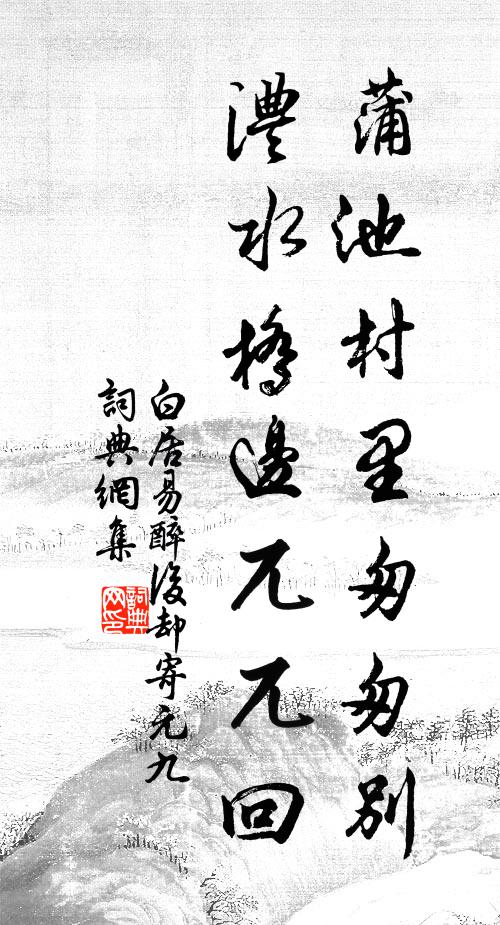 蒲池村里匆匆別
澧水橋邊兀兀回
白居易醉後却寄元九
詞典網集
詞典網印